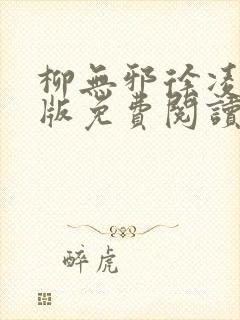 柳無邪徐凌
版免費閱讀
醉虎